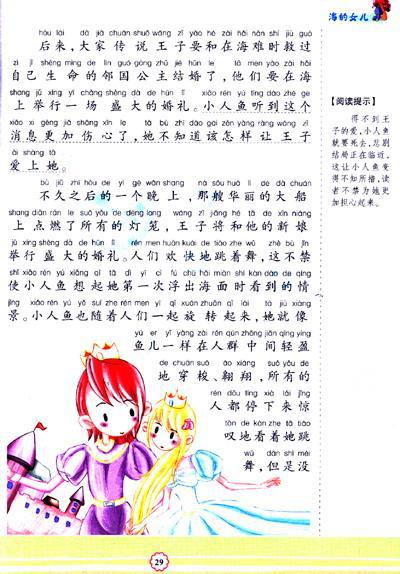 海的女儿
hòu lái dà jiā chuán shuō wáng zǐ yào hé zài hǎi nàn shí jiù guò
后来，大家传说王子要和在海难时救过
zì jǐ shēng mìng de lín guó gōng zhǔ jié hūn le tā men yào zài hǎi
自己生命的邻国公主结婚了，他们要在海
shang jǔ xíng yì chǎng shèng dà de hūn lǐ xiǎo rén yú tīng dào zhè ge
上举行一场 盛大的婚礼。小人鱼听到这个
xiāo xi gèng jiā shāng xīn le tā bù zhī dào gāi zěn yàng ràng wáng zǐ
消息更加伤心了，她不知道该怎样让王子
ài shàng tā
爱上她。
bù jiǔ zhī hòu de yí gè wǎn shang nà sōu huá lì de dà chuán
不久之后的一个晚上，那艘华丽的大船
shang diǎn rán le suǒ yǒu de dēng long wáng zǐ jiāng hé tā de xīn niáng
上点燃了所有的灯笼，王子将和他的新娘
jǔ xíng shèng dà de hūn lǐ rén men huān kuài de tiào zhe wǔ zhè bù jīn
举行盛大的婚礼。人们欢快地跳着舞，这不禁
shǐ xiǎo rén yú xiǎng qǐ tā dì yī cì fú chū hǎi miàn shí kàn dào de qíng
使小人鱼想起她第一次浮出海面时看到的情
jǐng xiǎo rén yú yě suí zhe rén men yì qǐ xuán zhuǎn qǐ lái tā jiù xiàng
景。小人鱼也随着人们一起旋转起来，她就像
yú er yí yàng zài rén qún zhōng jiān qīng yíng
鱼儿一样在人群中间轻盈
de chuān suō áo xiáng suǒ yǒu de
地穿梭、翱翔，所有的
rén dōu tíng xià lái jīng
人都停下来惊
tàn de kàn zhe tā tiào
叹地看着她跳
wǔ dàn shì méi
舞，但是没
【阅读提示】
得不到王
子的爱，小人鱼
就要死去，悲剧
结局正在临近，
这让小人鱼变
得不知所措，读
者不禁为她更
加担心起来。
29